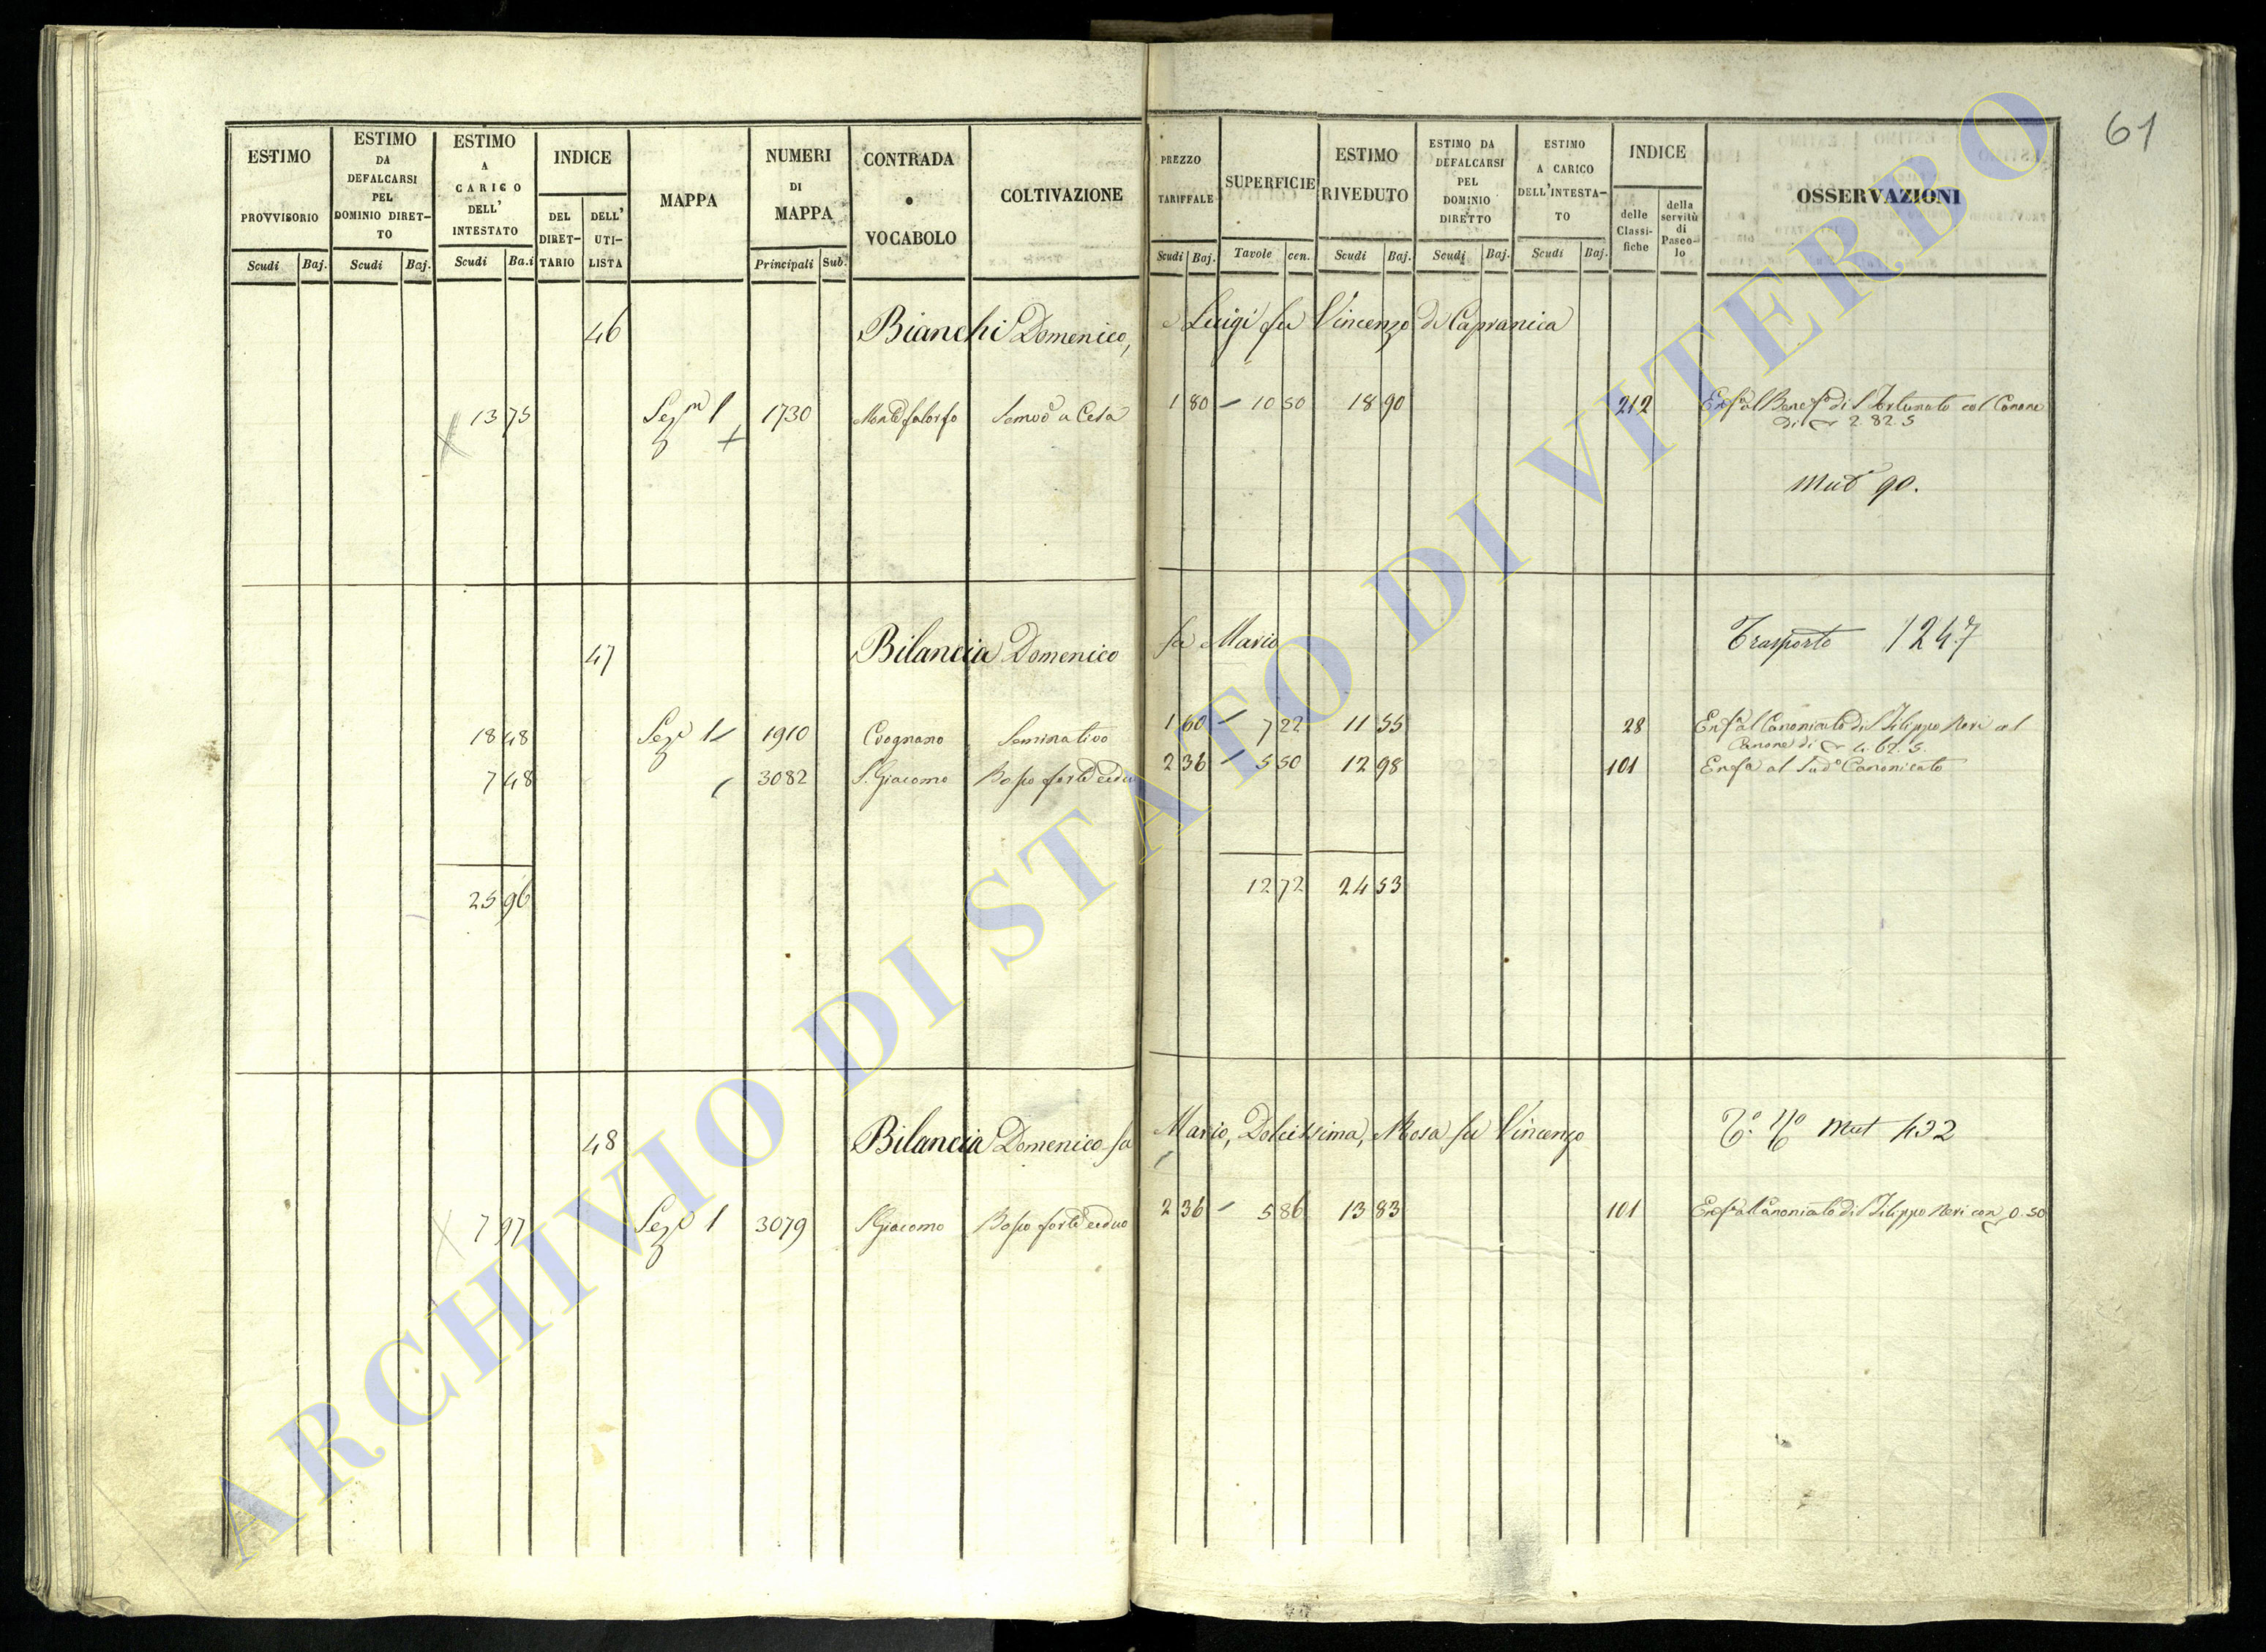 61
ESTIMO PROVVISORIO
Scudi Baj.
ESTIMO DA DEFALCARSI PEL DOMINIO DIRET-TO
Scudi Baj.
ESTIMO A CARICO DELL' INTESTATO
Scudi Ba.i
INDICE
DEL DIRET-TARIO
DELL' UTI-LISTA
MAPPA
NUMERI DI MAPPA
Principali Sub.
CONTRADA o VOCABOLO
COLTIVAZIONE
PREZZO TARIFFALE
Scudi Baj.
SUPERFICIE
Tavole cen.
ESTIMO RIVEDUTO
Scudi Baj.
ESTIMO DA DEFALCARSI PEL DOMINIO DIRETTO
Scudi Baj.
ESTIMO A CARICO DELL'INTESTA-TO
Scudi Baj.
INDICE
delle Classi-fiche
della servitù di Pasco-lo
OSSERVAZIONI
46 Bianchi Domenico, e Luigi fu Vincenzo di Capranica
13 75 Sez 1 1730 1 80 10 50 18 90 212 di S Fortunato col Canone
di 2. 82. 5
Mut 90.
47 Bilancia Domenico fu Mario Trasporto 1247
18 48 Sez 1 1910 Seminativo 1 60 7 22 11 55 28 Canonicato di S Filippo Neri col
Canone di 4. 62. 5.
7 48 3082 S. Giacomo Bosco forte ceduo 2 36 5 50 12 98 101 Enfa al Sudo Canonicato
25 96 12 72 24 53
48 Bilancia Domenico fu Mario, Dolcissima, Rosa fu Vincenzo Mut 432
7 97 Sez 1 3079 S Giacomo Bosco forte ceduo 2 36 5 86 13 83 101 Canonicato di S Filippo Neri con 0. 50
ARCHIVIO DI STATO DI VITERBO